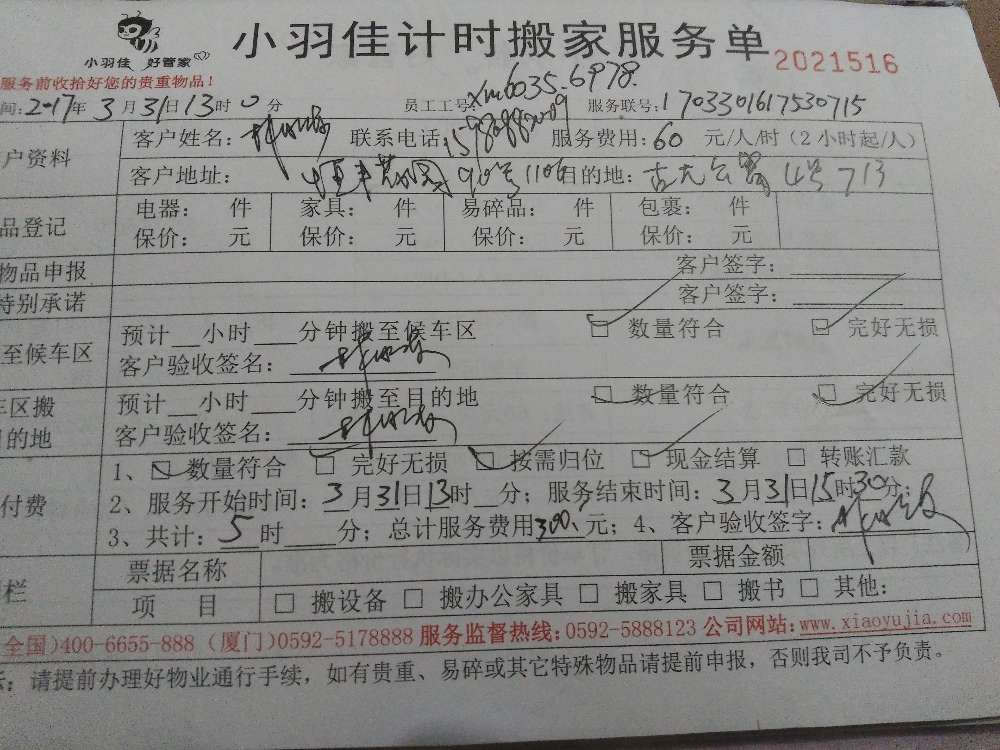 小羽佳计时搬家服务单
小羽佳 好管家
2021516
服务前收拾好您的贵重物品！
间：2017年3月31日13时0分 员工工号：xm6035.6978. 服务联号：1703301617530715
户资料
客户姓名： 联系电话： 服务费用：60 元/人/时（2小时起/人）
客户地址： 90号1106 目的地： 4号713
品登记
电器： 件 家具： 件 易碎品： 件 包裹： 件
保价： 元 保价： 元 保价： 元 保价： 元
物品申报 客户签字：
特别承诺 客户签字：
至候车区
预计__小时___分钟搬至候车区 数量符合 完好无损
客户验收签名：
车区搬
目的地
预计__小时___分钟搬至目的地 数量符合 完好无损
客户验收签名：
付费
1、 数量符合 完好无损 按需归位 现金结算 □ 转账汇款
2、服务开始时间：3月31日13时__分；服务结束时间：3月31日15时30分；
3、共计：5时____分；总计服务费用300元；4、客户验收签字：
栏
票据名称 票据金额
项 目 □ 搬设备 □ 搬办公家具 □ 搬家具 □ 搬书 □ 其他：
全国)400-6655-888 (厦门)0592-5178888 服务监督热线：0592-5888123 公司网站：www.xiaoyujia.com
：请提前办理好物业通行手续，如有贵重、易碎或其它特殊物品请提前申报，否则我司不予负责。